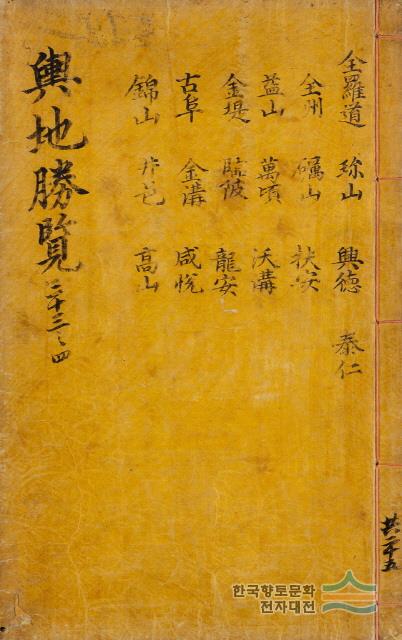 全羅道 珎山 興德 泰仁
全州 礪山 扶安
益山 萬頃 沃溝
金堤 臨陂 龍安
古阜 金溝 咸悅
錦山 井邑 高山
輿地勝覽 三十三之四
共二十五
한국향토문화
전자대전